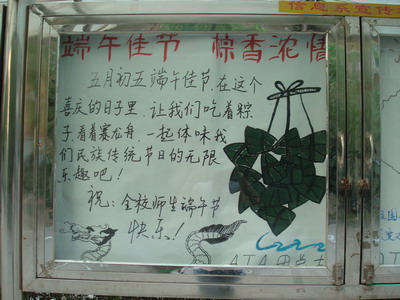 信息系宣传
端午佳节 粽香浓情
五月初五端午佳节,在这个
喜庆的日子里,让我们吃着粽
子看着赛龙舟,一起体味我
们民族传统节日的无限
乐趣吧!
祝:全校师生端午节
快乐!